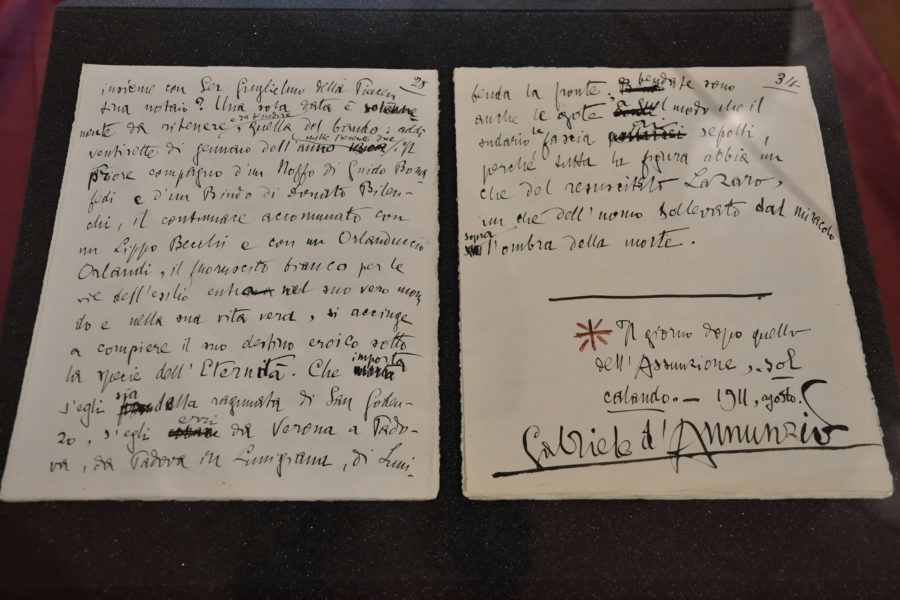 28
insieme con Ser Guglielmo della Piacca
suo notaio? Una sola data è solenne
mente da ritenere e da temere, quella del bando: addì
ventisette di gennaio dell'anno mille trecento due. Il
Priore compagno d'un Noffo di Guido Bona
fedi e d'un Bindo di Donato Bilen-
chi, il contumace accomunato con
un Lippo Becchi e con un Orlanduccio
Orlandi, il fuoruscito bianco per le
vie dell'esilio entra nel suo vero mon
do e nella sua vita vera, si accinge
a compiere il suo destino eroico sotto
la specie dell'Eternità. Che importa
s'egli sia della ragunata di San Goden-
zo, s'egli erri da Verona a Pado-
va, da Padova in Lunigiana, di Luni-
34
benda la fronte. bendate sono
anche le gote modo che il
sudario le fascia sepolti,
perché tutta la figura abbia un
che del resuscitato Lazaro,
un che dell'uomo sollevato dal miracolo
sopra l'ombra della morte.
Il giorno dopo quello
dell'Assunzione, sol
calando. — 1911, agosto.
Gabriele d'Annunzio